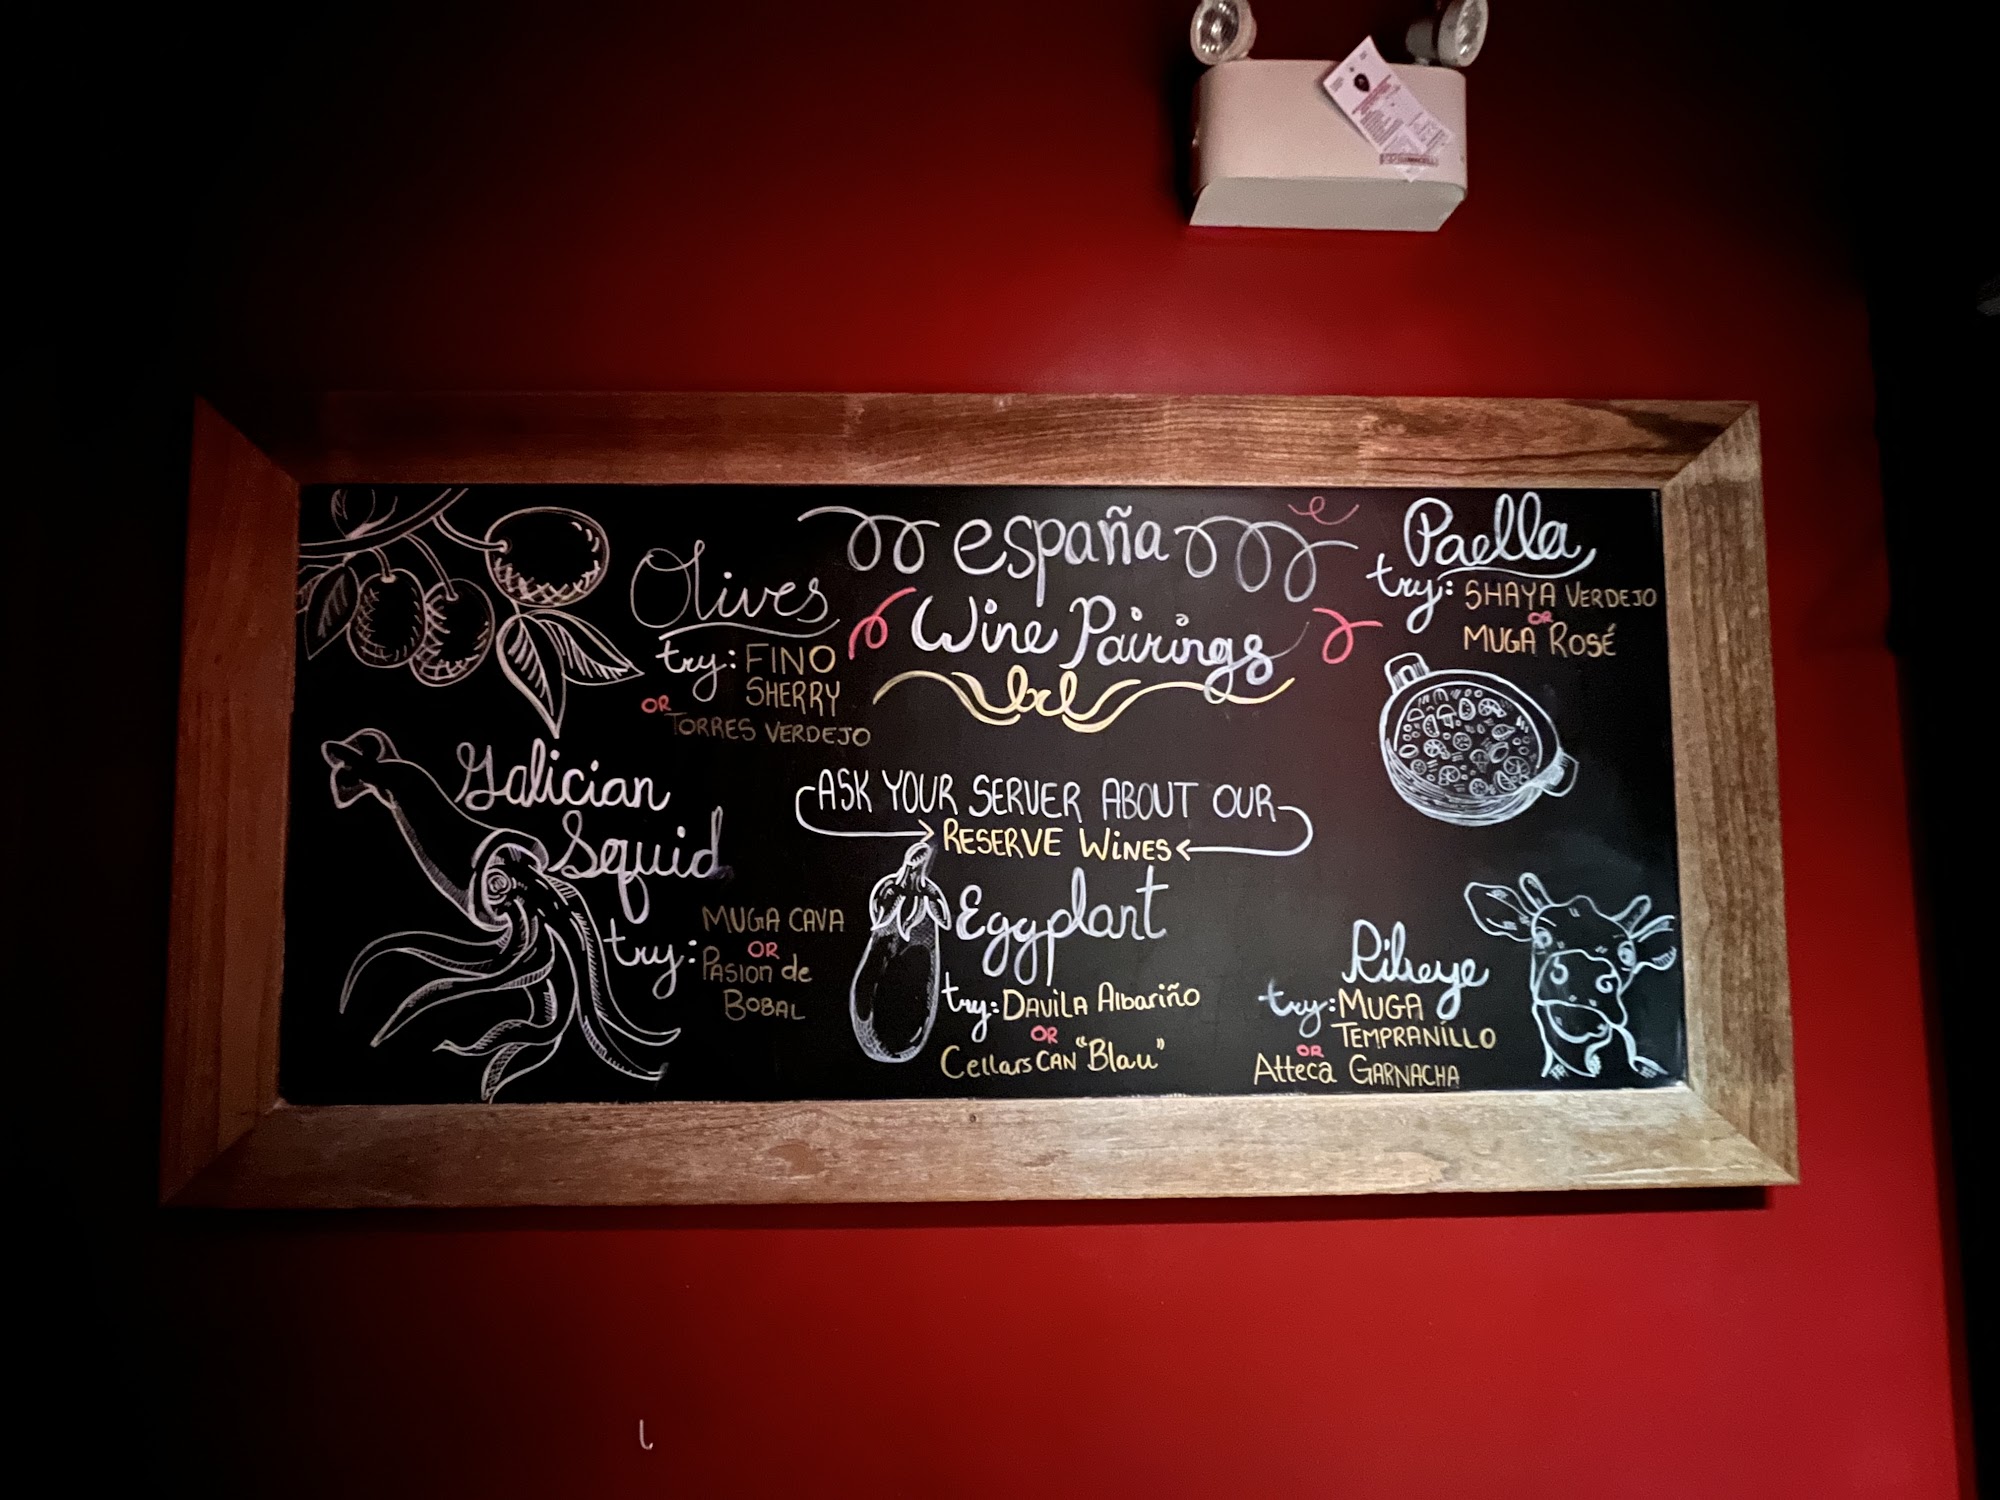 españa
Wine Pairings
Olives
try: FINO
SHERRY
OR
TORRES VERDEJO
Paella
try: SHAYA VERDEJO
OR
MUGA ROSÉ
Galician
Squid
try: MUGA CAVA
OR
Pasion de
BOBAL
ASK YOUR SERVER ABOUT OUR
RESERVE WINES
Eggplant
try: DAVILA Albariño
OR
Cellars CAN "Blau"
Ribeye
try: MUGA
TEMPRANÍLLO
OR
Atteca GARNACHA
DURACELL